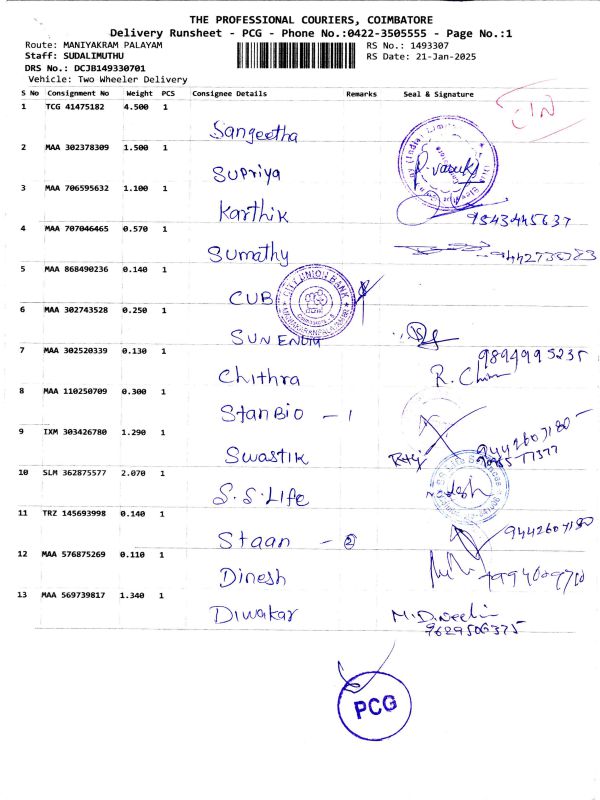 THE PROFESSIONAL COURIERS, COIMBATORE
Delivery Runsheet - PCG - Phone No.:0422-3505555 - Page No.:1
Route: MANIYAKRAM PALAYAM RS No.: 1493307
Staff: SUDALIMUTHU RS Date: 21-Jan-2025
DRS No.: DCJB149330701
Vehicle: Two Wheeler Delivery
S No Consignment No Weight PCS Consignee Details Remarks Seal & Signature
1 TCG 41475182 4.500 1
Sangeetha
2 MAA 302378309 1.500 1
Supriya
3 MAA 706595632 1.100 1
Karthik 9543445637
4 MAA 707046465 0.570 1
Sumathy
5 MAA 868490236 0.140 1
CUB CITY UNION BANK
6 MAA 302743528 0.250 1
7 MAA 302520339 0.130 1
9894995235
Chithra
8 MAA 110250709 0.300 1
StanBio - 1
9 IXM 303426780 1.290 1
9442607180
Swastik
10 SLM 362875577 2.070 1
S.S.Life
11 TRZ 145693998 0.140 1
9442607180
Staan - 2
12 MAA 576875269 0.110 1
Dinesh
13 MAA 569739817 1.340 1
Diwakar
9629506375
PCG